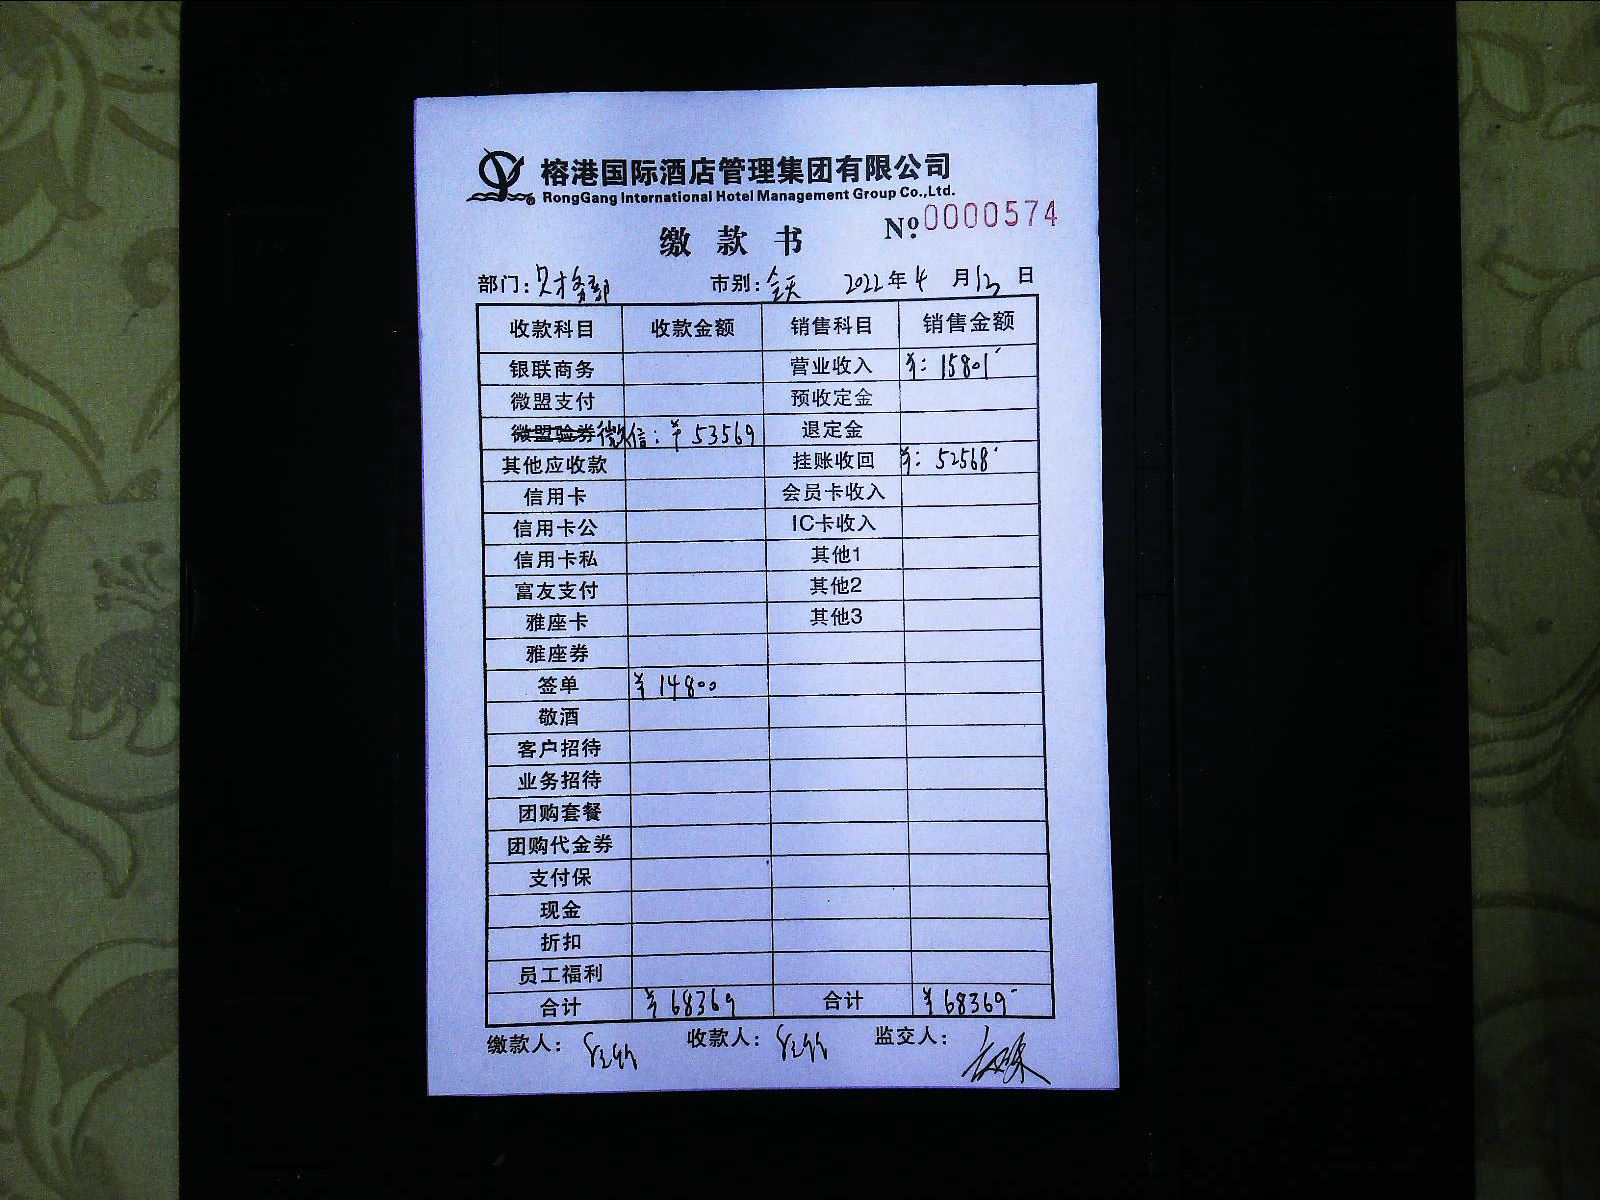 榕港国际酒店管理集团有限公司
RongGang International Hotel Management Group Co.,Ltd.
缴款书 Nº 0000574
部门:财务部 市别:全天 2022年4月13日
收款科目 收款金额 销售科目 销售金额
银联商务 营业收入 ¥: 15801
微盟支付 预收定金
微盟验券 微信: ¥ 53569 退定金
其他应收款 挂账收回 ¥: 52568
信用卡 会员卡收入
信用卡公 IC卡收入
信用卡私 其他1
富友支付 其他2
雅座卡 其他3
雅座券
签单 ¥ 14800
敬酒
客户招待
业务招待
团购套餐
团购代金券
支付保
现金
折扣
员工福利
合计 ¥ 68369 合计 ¥ 68369
缴款人: 收款人: 监交人: